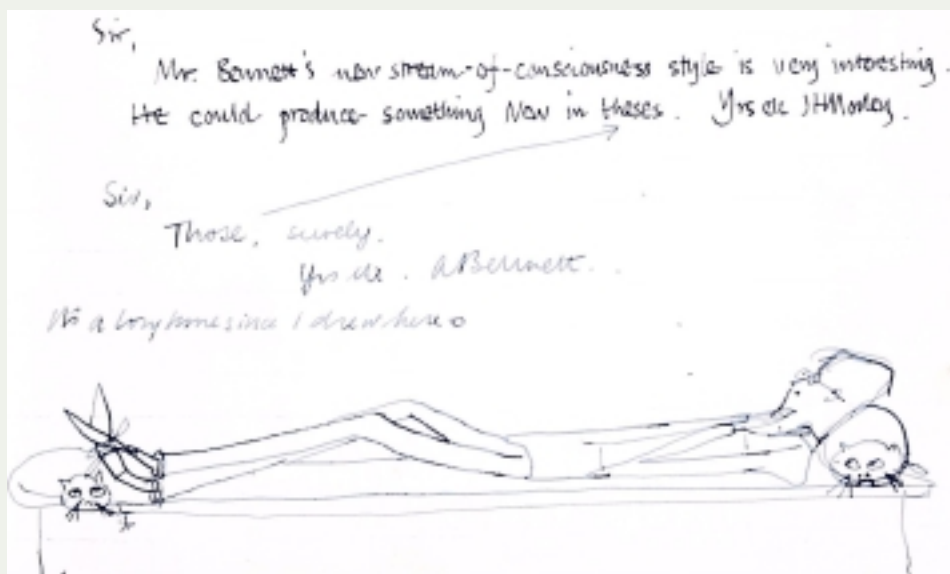 Sir,
Mr. Bennett's new stream-of-consciousness style is very interesting.
He could produce something New in theses. Yrs etc JHMorley.
Sir,
Those, surely.
Yrs etc. ABennett.
It's a long time since I drew here